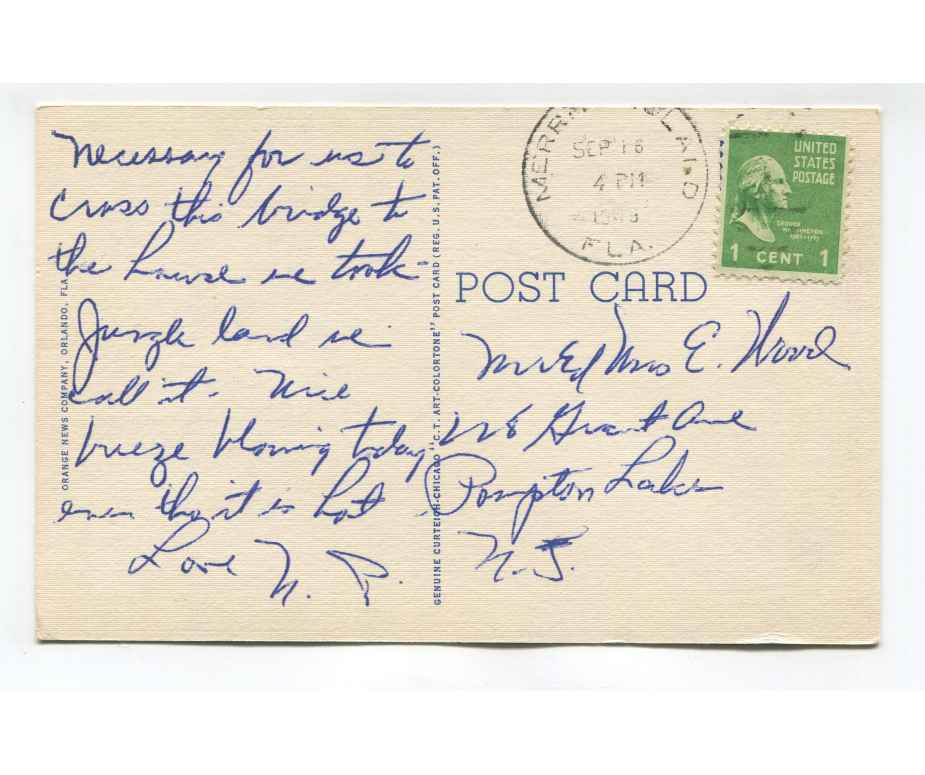 Necessary for us to
cross this bridge to
the house we took-
Jungle land we
call it. Nice
breeze blowing today
even tho it is hot
Love N. P.
ORANGE NEWS COMPANY, ORLANDO, FLA
GENUINE CURTEICH-CHICAGO "C.T. ART-COLORTONE" POST CARD (REG. U.S. PAT. OFF.)
SEP 16
4 PM
FLA.
UNITED
STATES
POSTAGE
1 CENT 1
POST CARD
Mrs E. Wood
Grant Ave
Pompton Lakes
N.J.